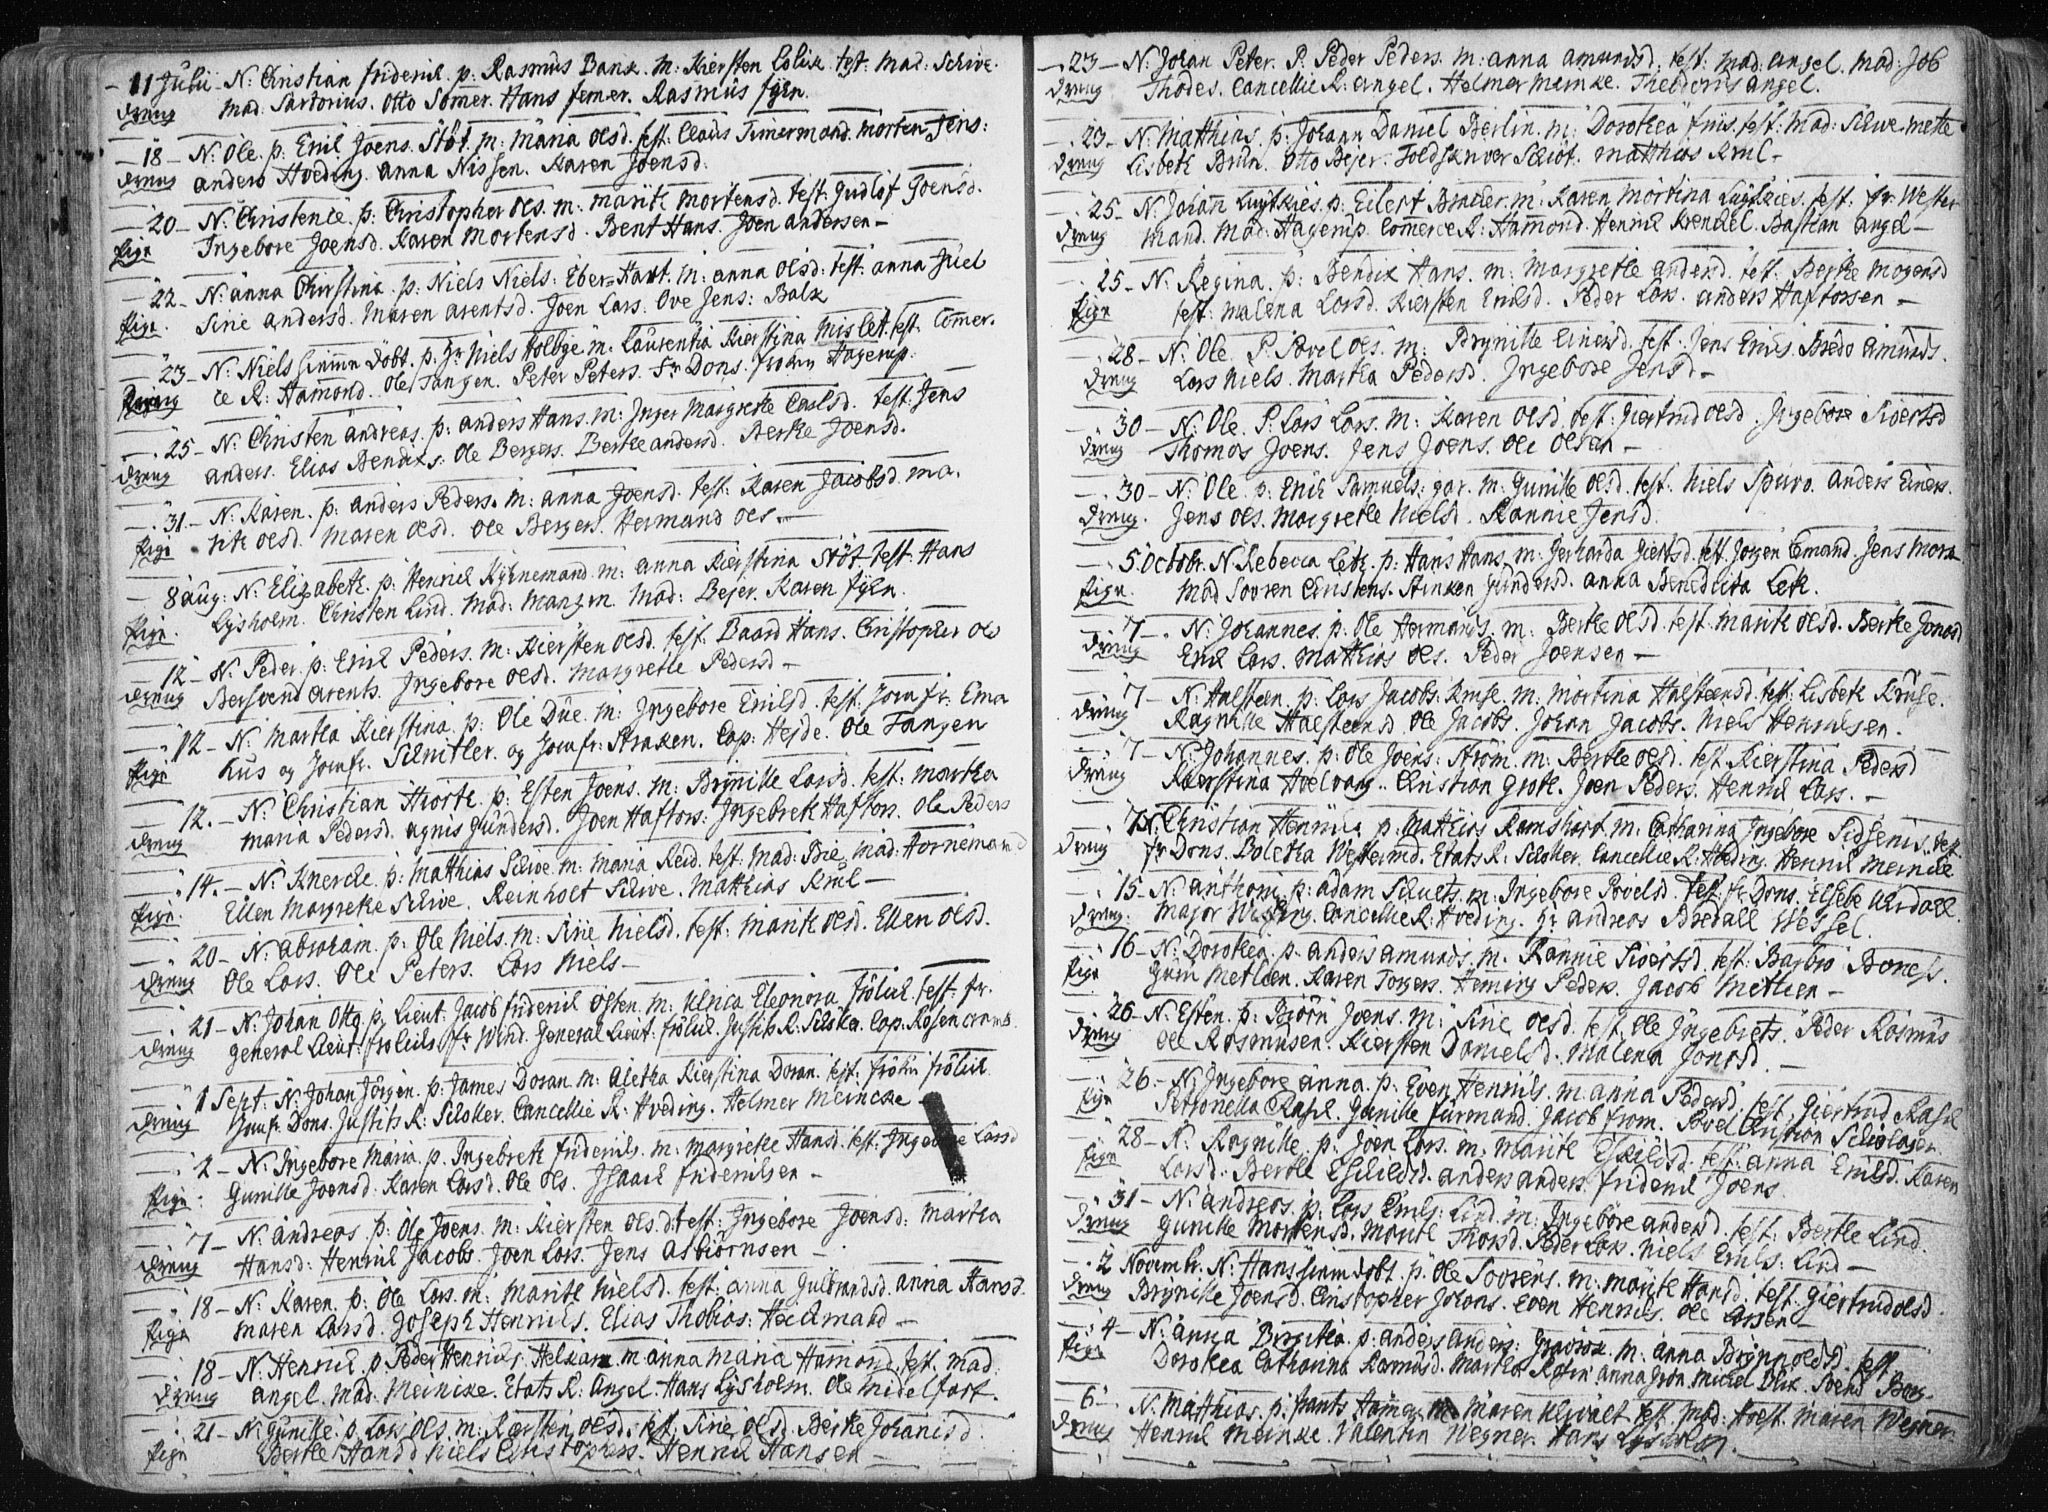 11 Julii N: Christian friderik. p: Rasmus Bank. M: Kiersten Colick. test: Mad: Schive.
dreng Mad. Sartorius. Otto Somer. Hans femer. Rasmus fÿen.
18 - N: Ole. p: Erik Joens. Støt. m: maria olsd. test: Claus Timermand. morten Jens:
dreng anders Hveding. anna Nissen. Karen Joensd.
20 - N: Christence. p: Christopher ols. m: marite mortensd. test: Gudlof Joensd.
Pige Ingebore Joensd. Karen Mortensd. Bent Hans. Joen andersen -
22 - N: anna Chirstina. p: Niels Niels: Eber-Hart. m: anna olsd: test: anna Juel
Pige. Sirie andersd. Maren arentsd. Joen Lars. Ove Jens: Balk
23 - N: Niels hiemme døbt. p: Hr Niels Holbye. m: Laurentia Kierstina Mislet. test. Comer.
dreng ce R: Hamond. Ole Tangen. Peter Peters. Fr Dons. frøken Hagerup.
25 - N: Christen andreas. p: anders Hans. m: Inger Margrete Carlsd. test: Jens
dreng anders. Elias Bendix. Ole Bergers. Berthe andersd. Berthe Joensd.
31 - N: Karen. p: anders Peders. m: anna Joensd. test: Karen Jacobsd. ma.
Pige rite olsd. Maren olsd. Ole Bergers. Hermand ols. -
8 aug: N: Elizabeth. p: Henrik Kÿhnemand. m: anna Kierstina Støt. test: Hans
Pige. Lysholm. Christen Lind. Mad: Mangen. Mad: Bejer. Karen fÿen.
12 - N: Peder. p: Erik Peders. m: Kiersten olsd. test. Baard Hans. Christopher ols
dreng Bersvend arents. Ingebore olsd. Margrethe Pedersd -
12 - N: Martha Kierstina. p: Ole Due. m: Ingebore Erilsd. test. Jomfr. Ema
Pige hus og Jomfr. Schnitler. og Jomfr: Straken. Cap: Hejde. Ole Tangen
12. - N: Christian Hiorth. p: Esten Joens. m: Brÿnille Larsd. test: martha
dreng maria Pedersd. agnis Gundersd. Joen Haftors. Ingebreth Haftors. Ole Peders
14. - N: Knercke. p: Mathias Schive. m: Maria Reid. test. Mad: Brie. Mad: Hornemand
Pige. Ellen Margrete Schive. Reinholt Schive. Matthias Krul -
20 - N: abraham. p: Ole Niels. m: Sirie Nielsd. test: Marite olsd. Ellen olsd.
dreng Ole Lars. Ole Peters. Lars Niels -
21 - N: Johan Otto. p: Lieut: Jacob friderik Osten. m: Ulrica Eleonora frølich. test. fr.
dreng general Lieut: frølichs. fr Wind. General Lieut: frølich. Justits R: Schøller. Cap: Rosencrants.
1 Sept: N: Johan Jörgen. p: James Doran. m: Aletha Kierstina Doran. test: frøkn frölich
dreng Jomfr Dons. Justits R: Schøller. Cancellie R: Hveding. Helmer Meincke -
2 - N: Ingebore Maria. p. Ingebreth frideriks. m: margrete Hansd. test: Ingebore Larsd
Pige. Gunille Joensd. Karen Larsd. Ole Ols. Isaack friderichsen -
7 - N: andreas. p: Ole Joens. m: Kiersten olsd: test: Ingebore Joensd: Martha
dreng Hansd: Henrik Jacobs. Joen Lars. Jens asbiørnsen -
18 - N: Karen. p: Ole Lars. m: Marite Nielsd. test: anna Gulbrandsd. anna Hansd.
Pige Maren Larsd. Joseph Henriks. Elias Thobias: Heidmand -
18 - N: Henrik. p. Peder Henriks. m: anna maria Hamond. test. mad:
dreng angel. Mad. Meincke. Etats R: Angel. Hans Lysholm. Ole Midelfart.
21 - N: Gunille. p: Lars Ols. m: Kiersten olsd. test. Sirie olsd. Berthe Johanisd.
Pige Berthe Hansd. Niels Christophers. Henrik Hansen -
23 - N: Johan Peter. P. Peder Peders. m: anna amundsd. test: Mad: angel. Mad: Job
dreng Thodes. Cancellie R: angel. Helmer Meincke. Theodorus angel.
23 - N: Matthias. p: Johann Daniel Berlin. m: Dorothea friis. test: Mad: Schive. mette
dreng Lisbeth Brun. Otto Bejer. Toldskriver Schiøt. Matthias Krul -
25 - N: Johan Luÿtkies. p: Eilert Brader. m: Karen Mortina Luÿtkies. test. fr. Wester
dreng mand. Mad: Hagerup. Comerce R: Hamond. Henrik Krenkel. Bastian angel -
25 - N: Regina. p: Bendix Hans. m: Margrethe andersd. test: Berthe Mogensd
Pige test: Malena Larsd. Kiersten Erilsd. Peder Lars. anders Haftorsen -
28 - N: Ole. P. Povel ols. m: Brÿnille Einersd. test. Jens Eriks. Bredo amunds.
dreng Lars Niels. Martha Pedersd. Ingebore Jensd -
30 - N: Ole. P: Lars Lars. m: Karen olsd. test: Giertrud olsd. Ingebore Sivertsd
dreng Thomas Joens. Jens Joens. Ole Olsen -
30 - N: Ole. p: Erik Samuels: gar. m: Gunille olsd. test. Niels Spuro. anders Einers.
dreng. Jens ols. Margrethe Nielsd. Rannie Jensd.
5 Octobr. N: Rebecca Leth. p: Hans Hans. m: Gerharda Giertsd. test. Jorgen Emand. Jens Mora
Pige. Mad Sooren Christens. Stinken Gundersd. anna Benedicta Leth.
7 - N: Johannes. p: Ole Hermands. m: Berthe olsd. test. Marite olsd. Berthe Jonasd
dreng Erik Lars. Mathias ols. Peder Joensen -
7 - N: Halsteen. p: Lars Jacobs. Kruse. m: Mortina Halsteensd. test: Lisbeth Kruse.
dreng Ragnille Halsteensd. Ole Jacobs. Johan Jacobs. Niels Henriksen.
7 - N: Johannes. p: Ole Joens: Strøm. m: Berthe olsd. test. Kierstina Pedersd
dreng Kierstina Hvelvang. Christian Grote. Joen Peders. Henrik Lars. -
7 N: Christian Henrik. p: Mathias Ramshart. m: Catharina Ingebore Sidsenis. test.
dreng fr Dons. Boletha Westermd. Etats R: Schøller. Cancellie R: Hveding. Henrik Meincke
15 - N: anthoni. p: adam Schults. m: Ingebore Povelsd. test. fr Dons. Elsebe Uirdall.
dreng. Major Cancellie R: Hveding. Hr andreas Bredall Wessel.
16 - N: Dorothea. p. anders amunds. m. Rannie Sivertsd. test: Barbro Boness.
Pige Guru Metlien. Karen Torgers. Heming Peders. Jacob Metlien -
26 - N: Esten. p: Biørn Joens. m: Sirie olsd. test. Ole Ingebrets. Peder Rasmus
dreng Ole Rasmusen. Kiersten Danielsd. Malena Jonasd.
26 - N: Ingebore anna. p: Even Henriks. m. anna Pedersd. test. Giertrud Rasch
Pige Petronella Rasch. Gunille furmand. Jacob from. Povel Christian Schelasen
28 - N: Ragnille. p: Joen Lars. m: Marite Eskildsd. test: anna Erilsd. Karen
Pige Larsd. Berthe Eskildsd. anders anders. friderik Joens
31 - N: andreas. p: Lars Eriks: Lind. m: Ingebore andersd. test: Berthe Lind.
dreng Gunille Mortensd. Marite Thorsd. Peder Lars. Niels Eriks: Lind -
2 Novembr. N: Hans hiem døbt. p: Ole Soorens. m: marite Hansd. test. Giertrud olsd.
dreng Brÿnille Joensd. Christopher Johans. Even Henriks. Ole Larsen -
4 - N: anna Birgitha. p: anders anders: m: anna Brÿnnoldsd. test
Pige Dorothea Catharina Rasmusd. Martha Rosin. anna Grøn. Michel Blix. Svend Berg.
6 - N: Matthias. p. frants Hamer. m: Maren Ulrvalt. test. Mad: Holst. Maren Wegner.
dreng Henrik Meincke. Valentin Wegner. Hans Lysholm.